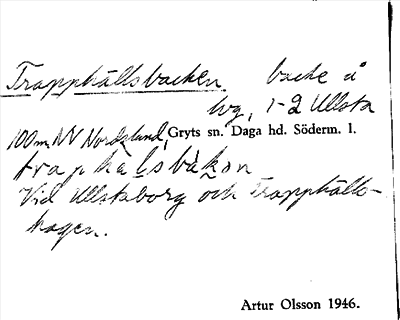 Trapphällsbacken backe å
lvg, 1-2 Ullsta
100m NV Nordslund, Gryts sn. Daga hd. Söderm. l.
traphälsbakən
Vid Ullstaborg och Trapphälls-
hagen.
Artur Olsson 1946.